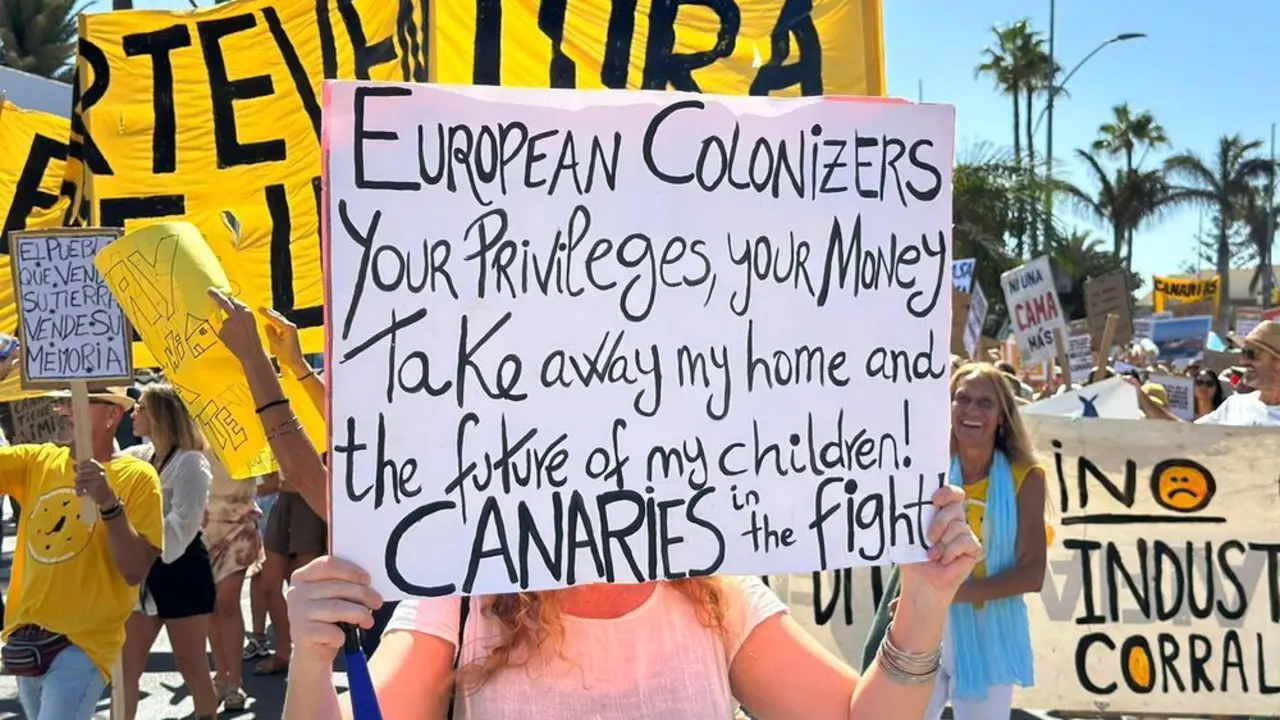 RTEVENTURA
EUROPEAN COLONIZERS
YOUR PRIVILEGES, YOUR MONEY
TAKE AWAY MY HOME AND
the future of my children!
CANARIES in the fight!
EL PUEBLO
QUE VENDE
SU TIERRA
VENDE SU
MEMORIA
NI UNA
CAMA
MÁS
CANARIAS
¡NO
INDUST
CORRAL